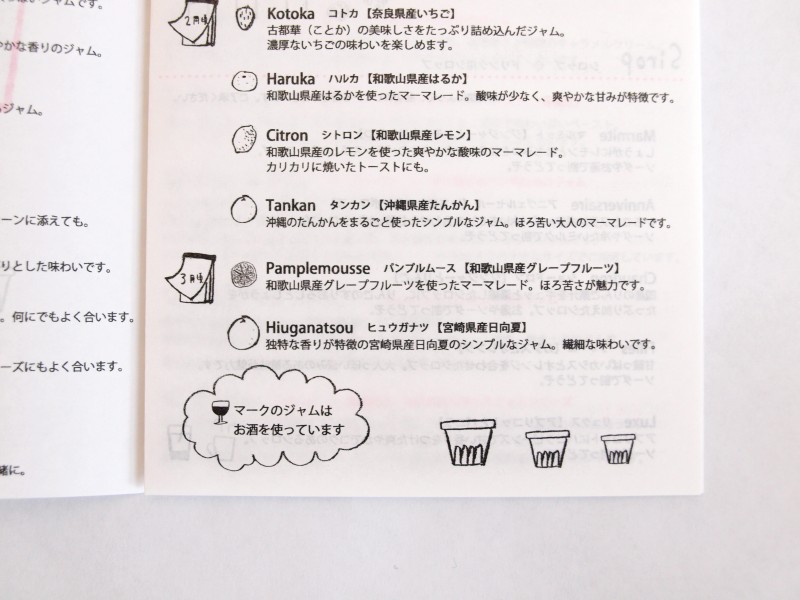 っぱいジャムです。
やかな香りのジャム。
ジャム。
ーンに添えても。
りとした味わいです。
。何にでもよく合います。
ーズにもよく合います。
緒に。
2月頃
Kotoka コトカ【奈良県産いちご】
古都華（ことか）の美味しさをたっぷり詰め込んだジャム。
濃厚ないちごの味わいを楽しめます。
Haruka ハルカ【和歌山県産はるか】
和歌山県産はるかを使ったマーマレード。酸味が少なく、爽やかな甘みが特徴です。
Citron シトロン【和歌山県産レモン】
和歌山県産のレモンを使った爽やかな酸味のマーマレード。
カリカリに焼いたトーストにも。
Tankan タンカン【沖縄県産たんかん】
沖縄のたんかんをまるごと使ったシンプルなジャム。ほろ苦い大人のマーマレードです。
3月頃
Pamplemousse パンプルムース【和歌山県産グレープフルーツ】
和歌山県産グレープフルーツを使ったマーマレード。ほろ苦さが魅力です。
Hiuganatsou ヒュウガナツ【宮崎県産日向夏】
独特な香りが特徴の宮崎県産日向夏のシンプルなジャム。繊細な味わいです。
マークのジャムは
お酒を使っています